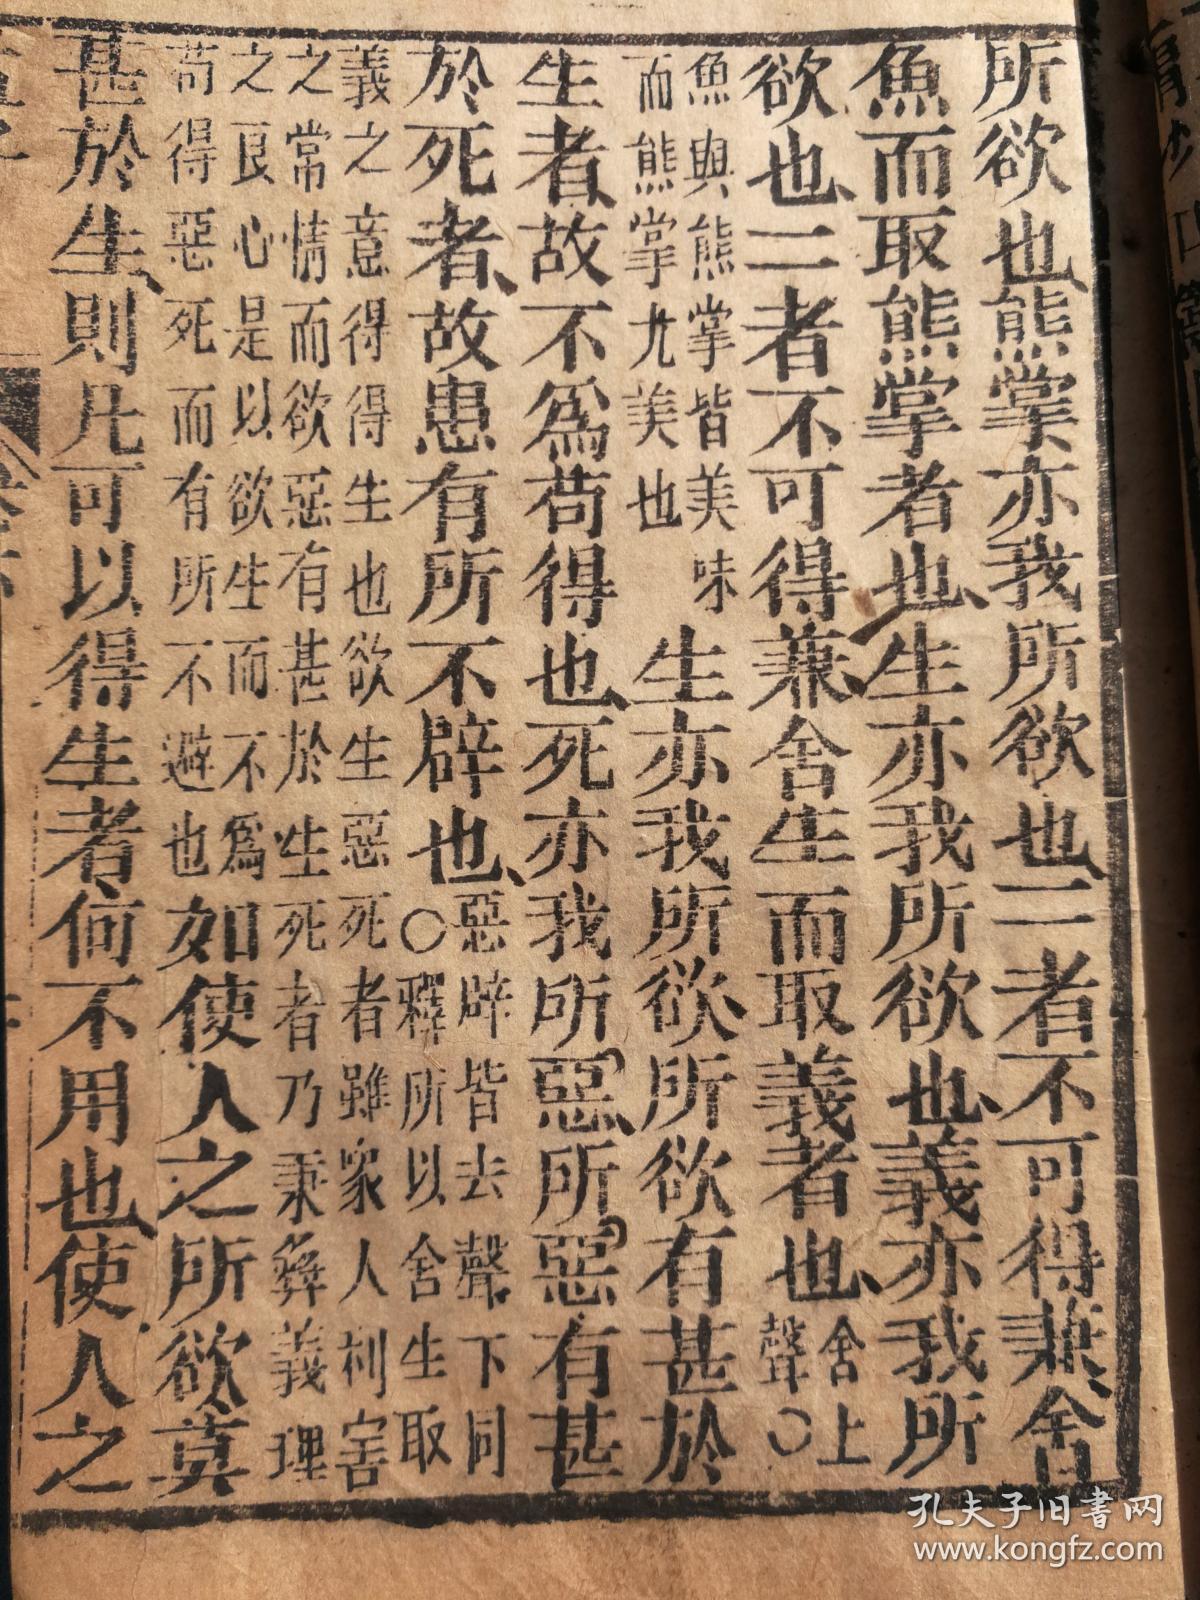 所欲也、熊掌亦我所欲也、二者不可得兼、舍
魚而取熊掌者也、生亦我所欲也、義亦我所
欲也、二者不可得兼、舍生而取義者也、舍上
聲○
魚與熊掌皆美味
而熊掌尤美也
生亦我所欲、所欲有甚於
生者、故不爲苟得也、死亦我所惡、所惡有甚
於死者、故患有所不辟也、惡辟皆去聲下同
○釋所以舍生取
義之意得得生也欲生惡死者雖衆人利害
之常情而欲惡有甚於生死者乃秉彝義理
之良心是以欲生而不爲
苟得惡死而有所不避也
如使人之所欲莫
甚於生、則凡可以得生者、何不用也、使人之
孔夫子旧书网
www.kongfz.com